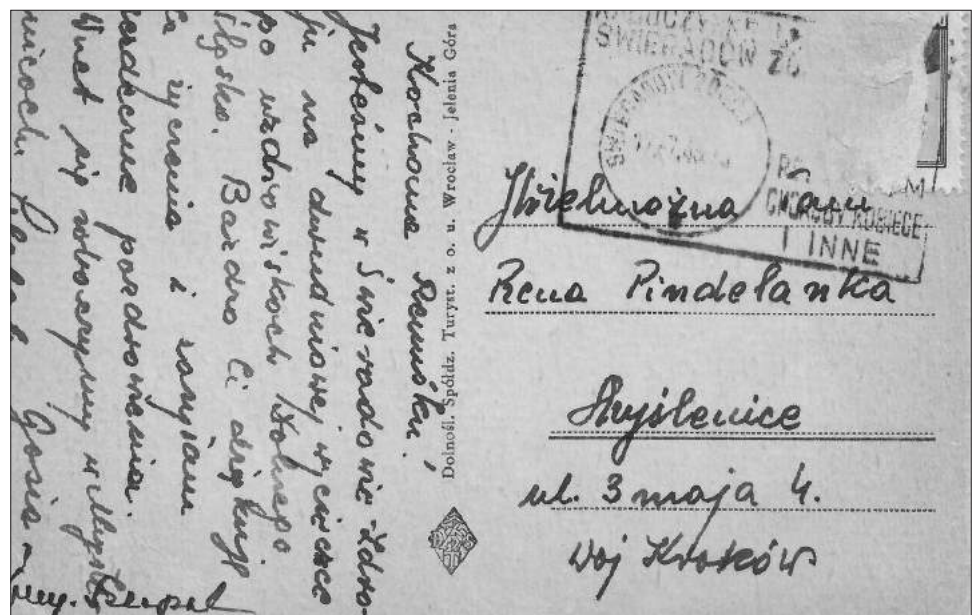 Kochana Renuśku!
Jesteśmy w Świeradowie-Zdro-
ju na dwudniowej wycieczce
po uzdrowiskach Dolnego
Śląska. Bardzo Ci dziękuję
za życzenia i
serdeczne pozdrowienia.
Wnet się zobaczymy w Myśle-
nicach.
Gosia
Dolnośl. Spółdz. Turyst. z o. u. Wrocław - Jelenia Góra
ŚWIERADÓW
ŚWIERADÓW ZDRÓJ
CHOROBY KOBIECE
I INNE
Wielmożna Pani
Rena Pindelanka
Myślenice
ul. 3 maja 4.
Woj Kraków